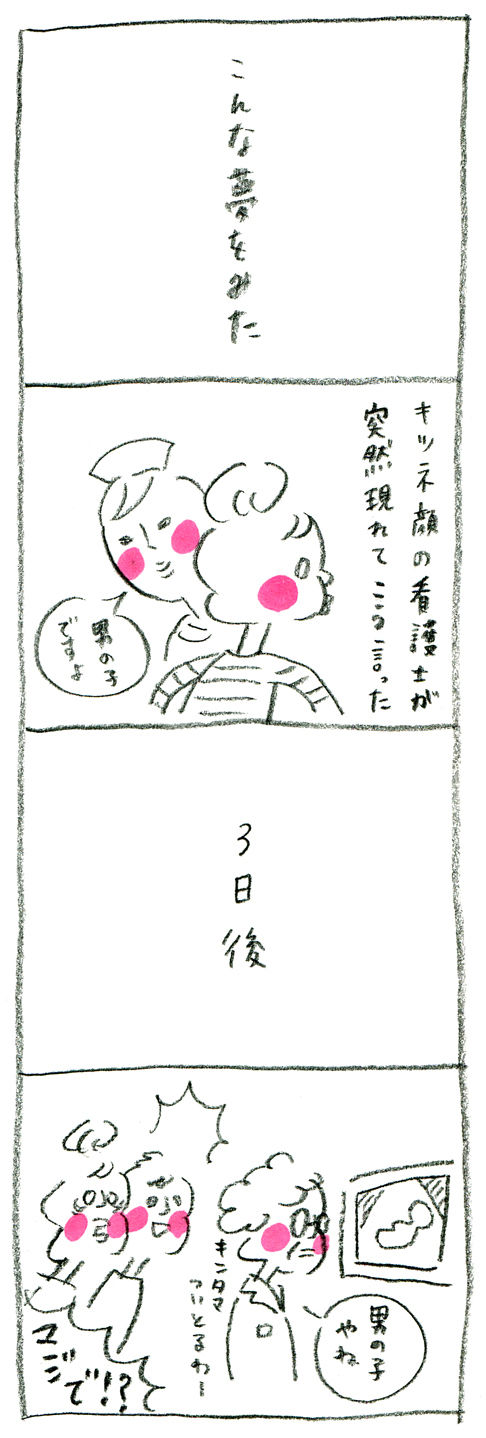 こんな夢をみた
キツネ顔の看護士が
突然現れてこう言った
男の子
ですよ
3日後
男の子
やね
キンタマ
ついとるわー
マジで!?